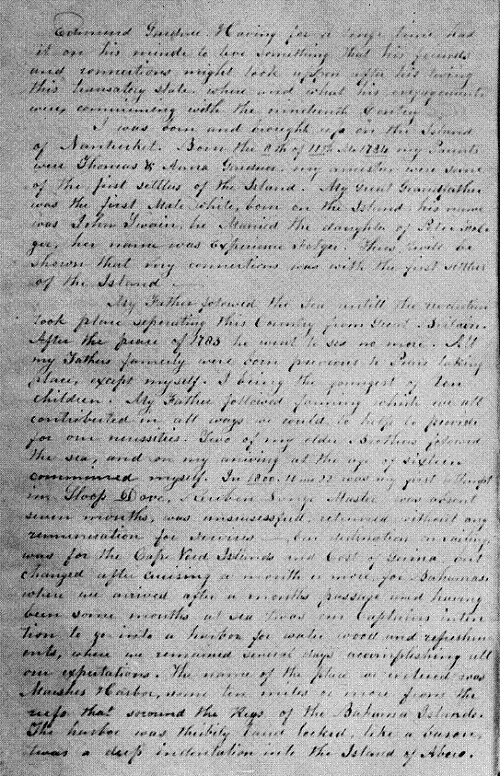 Edmund Gardner Having for a long time had
it on his minde to leve something that his friends
and connections might look upon after his leving
this transatory state where and what his engagements
were, commincing with the nineteenth Centry
I was born and brought up on the Island
of Nantucket. Born the 8th of 11th Mo 1784 my Parents
were Thomas & Anna Gardner, my ancestors were some
of the first settlers of the Island. My Great Grandfather
was the first Male White, born on the Island his name
was John Swain, he Married the daughter of Peter Fol-
ger, her name was Experience Folger. Thus it will be
shown that my connections was with the first settlers
of the Island
My Father folowed the Sea untill the revolution
took place seperating this Country from Great Britain.
After the peace of 1783 he went to sea no more. All
my Fathers family were born previous to Peace taking
place, except myself. I being the youngest of ten
children. My Father followed farming which we all
contributed in all ways we could to help to provide
for our nessities. Two of my older Brothers folowed
the sea, and on my ariving at the age of sixteen
commenced myself. In 1800 was my first attempt
in Sloop Dove, Reuben Master was absent
seven months, was unsucsessfull, returned without any
remuneration for services. Our destination on sailing
was for the Cape Verd Islands and Cost of Guina, but
changed after cruising a month or more, for Bahamas
where we arived after a months passage and having
been some months at sea twas our Captains inten
tion to go into a harbor for water wood and refreshm
ents, where we remained several days accomplishing all
our expectations. The name of the place we entered was
Marshes Harbor, some ten miles or more from the
reefs that suround the Keys of the Bahama Islands.
The harbor was land locked, like a bason,
twas a deep indentation into the Island of Abaco.